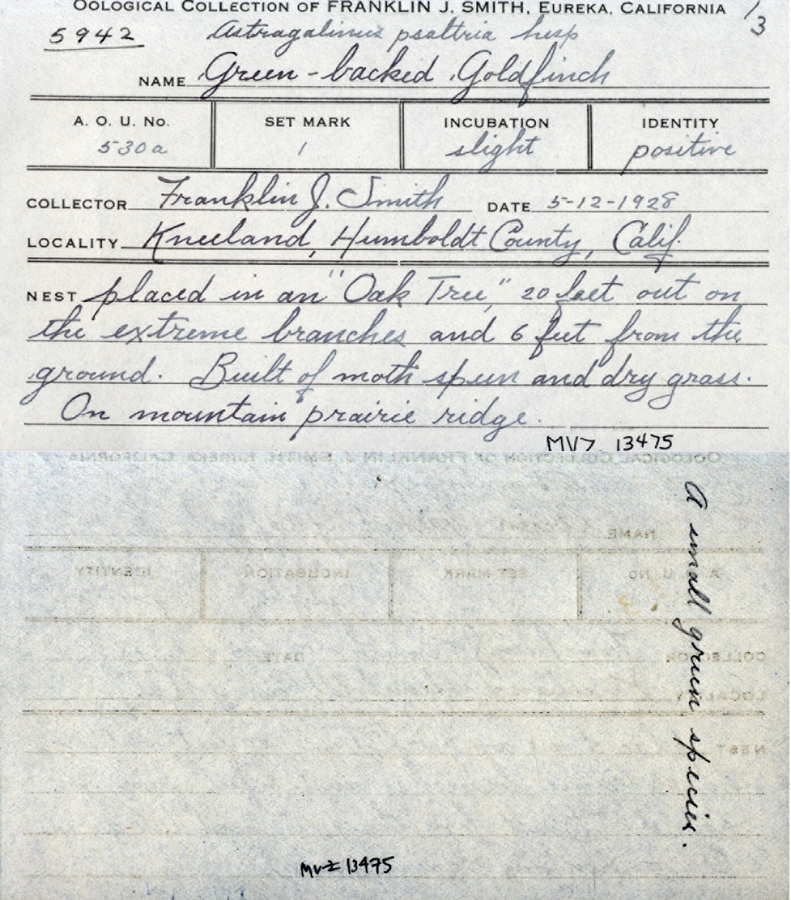 OOLOGICAL COLLECTION OF FRANKLIN J. SMITH, EUREKA, CALIFORNIA 1/3
5942 Astragalinus psaltria hesp
NAME Green-backed Goldfinch
A. O. U. NO. SET MARK INCUBATION IDENTITY
530a 1 slight positive
COLLECTOR Franklin J. Smith DATE 5-12-1928
LOCALITY Kneeland, Humboldt County, Calif.
NEST placed in an "Oak Tree", 20 feet out on
the extreme branches and 6 feet from the
ground. Built of moth spun and dry grass.
On mountain prairie ridge.
MVZ 13475
A small green species.
MVZ 13475